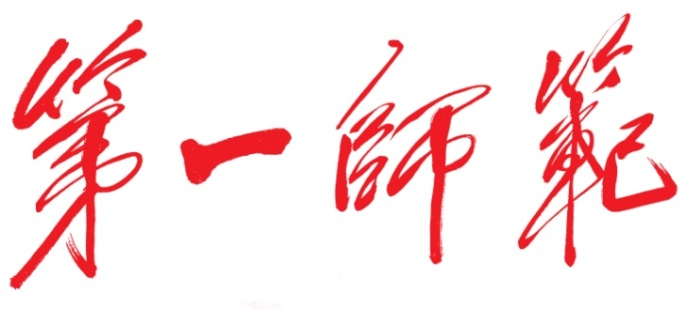 第一師範